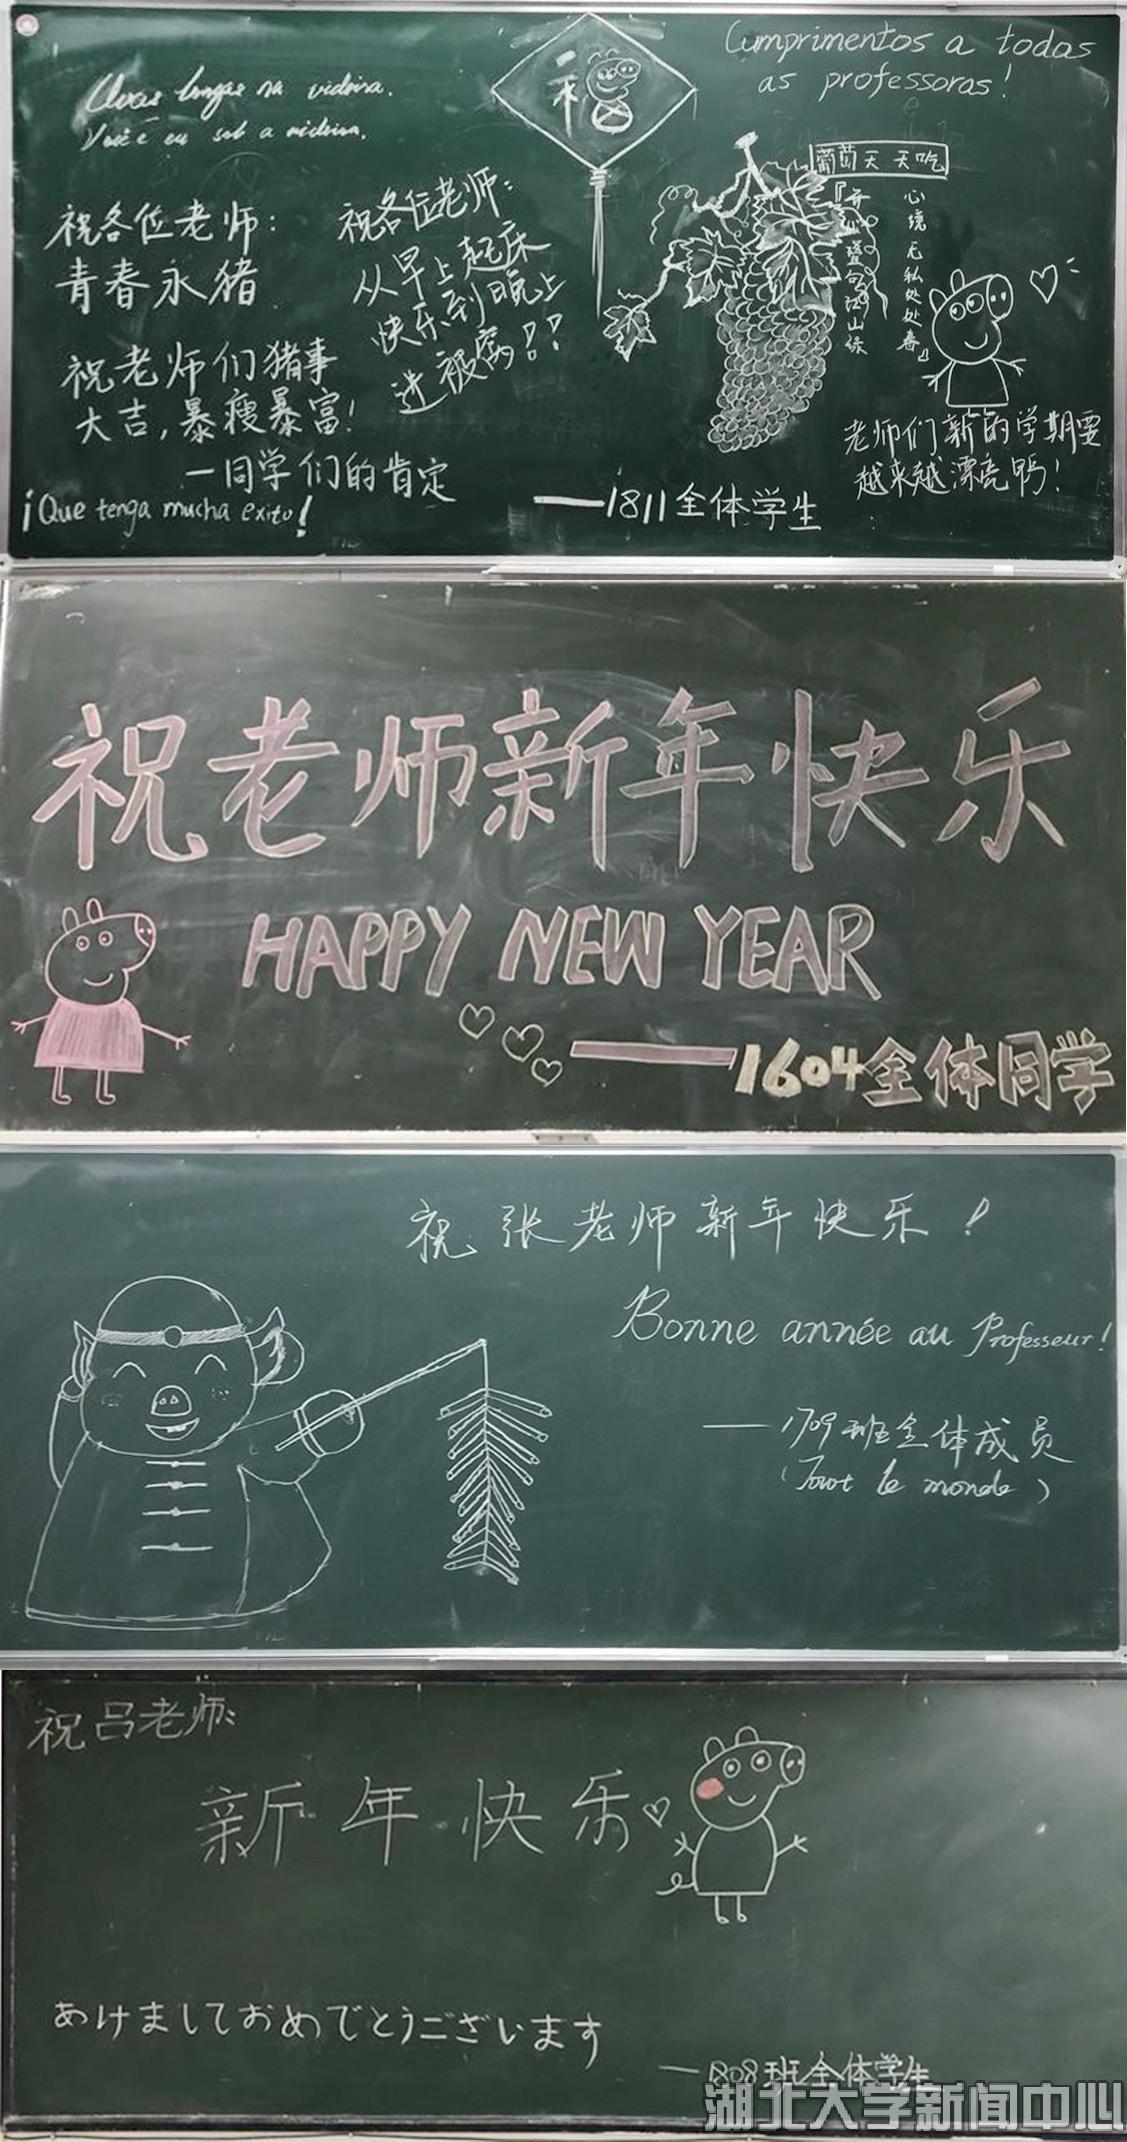 Cumprimentos a todas
as professoras!
Uvas longas na videira.
Você e eu sob a videira.
福
葡萄天天吃
祝各位老师:
青春永猪
祝老师们猪事
大吉,暴瘦暴富!
一同学们的肯定
¡Que tenga mucha exito!
祝各位老师:
从早上起床
快乐到晚上
进被窝!?
心境无私处处春』
老师们新的学期要
越来越漂亮鸭!
——1811全体学生
祝老师新年快乐
HAPPY NEW YEAR
——1604全体同学
祝张老师新年快乐!
Bonne année au Professeur!
——1709班全体成员
(Tout le monde)
祝吕老师:
新年快乐
あけましておめでとうございます
—1808班全体学生
湖北大学新闻中心